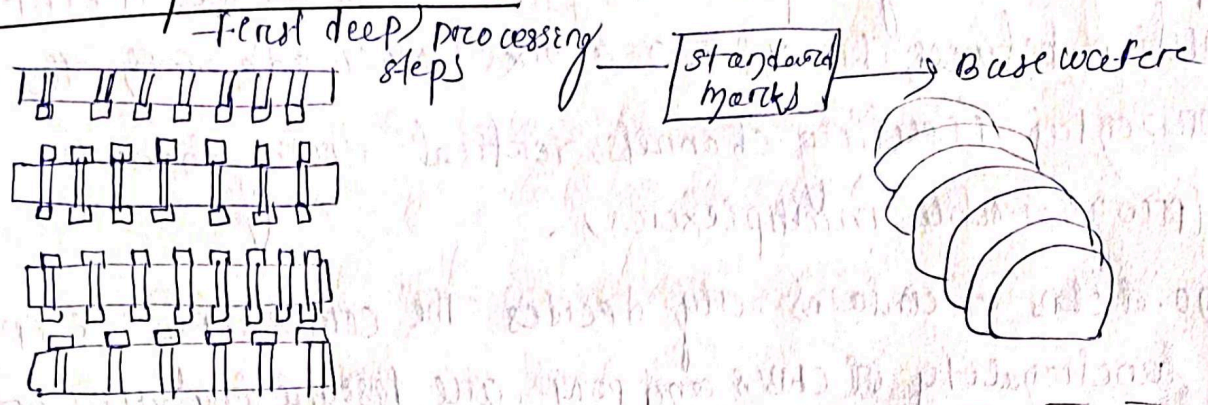 First deep processing
steps
standard
marks
Base wafer